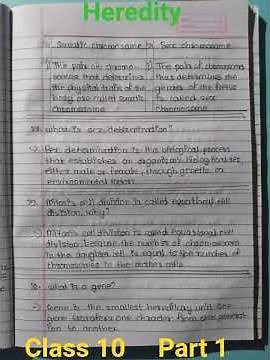 Heredity
Somatic chromosome Sex chromosome
1) The pair of chromo- 1) The pair of chromosomes
somes that determines that determines the
the physical traits of the gender of the foetus
body are called somatic is called sex
chromosome chromosome.
what is sex determination?
Sex determination is the biological process
that establishes an organism's biological sex,
either male or female, through genetic or
environmental
Mitosis cell division is called equational cell
division. why?
Mitosis cell division is called equational cell
division because the number of chromosomes
in the daughter cell is equal to the number of
chromosomes in the mother cell.
what is a gene?
Gene is the smallest hereditary unit
gene transfers one character from one
to another.
Class 10 Part 1